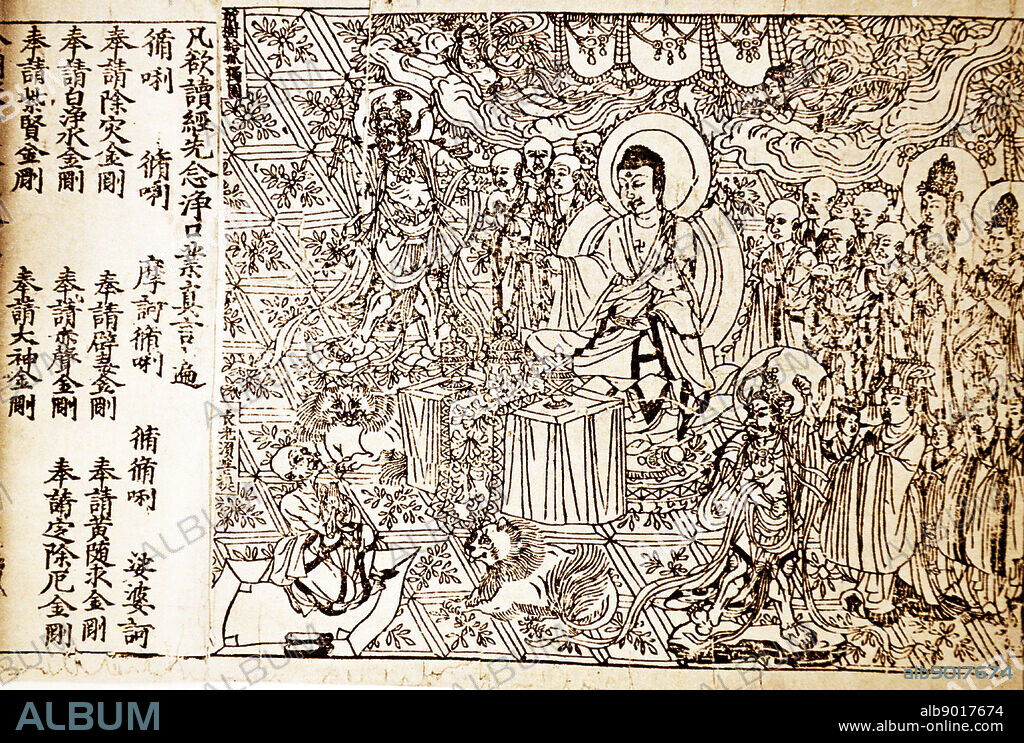 祇樹給孤獨園
長老須菩提
凡欲讀經先念淨口業真言一遍
脩唎 脩唎 摩訶脩唎 脩脩唎 娑婆訶
奉請除灾金剛 奉請辟毒金剛 奉請黃隨求金剛
奉請白淨水金剛 奉請赤聲金剛 奉請定除厄金剛
奉請紫賢金剛 奉請大神金剛
ALBUM
alb9017674
ALBUM
alb9017674
www.album-online.com